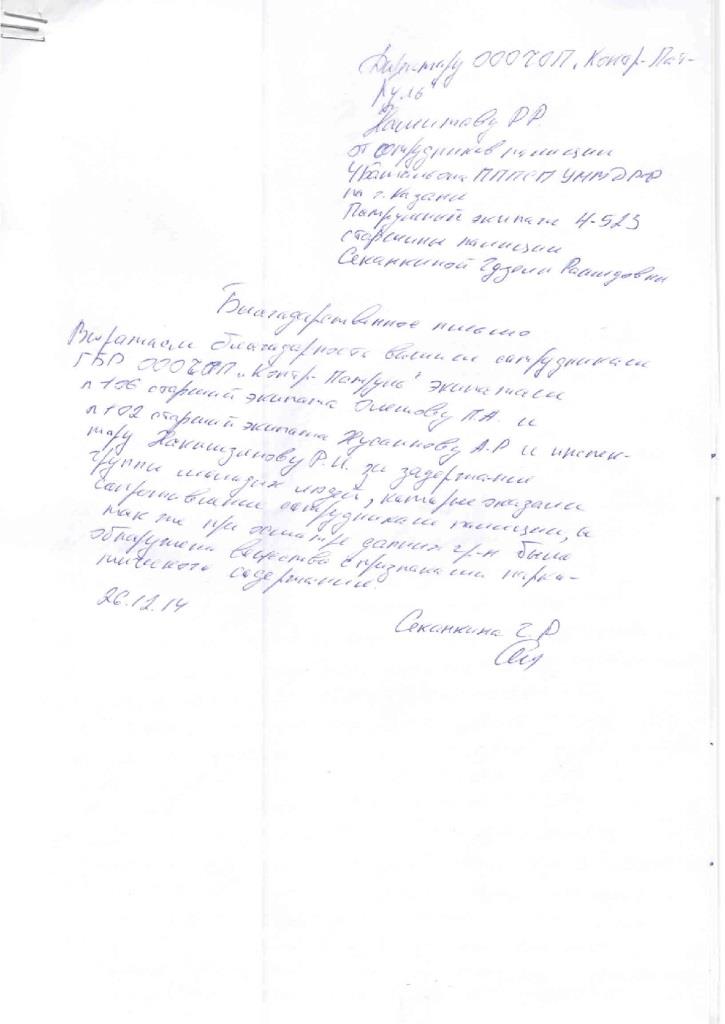 Директору ООО ЧОП „Контр-Пат-
руль"
Р.Р.
от сотрудников полиции
4 батальона ППСП УМВД РФ
по г. Казани
Патрульный экипаж 4-523
старшины полиции
Секанкиной Гузели Рашидовны
Благодарственное письмо
Выражаем благодарность вашим сотрудникам
ГБР ООО ЧОП „Контр-Патруль" экипажам
п 106 старший экипажа П.А. и
п 102 старший экипажа Хусаинову А.Р и инспек-
тору Р.И. за задержание
группы молодых людей, которые оказали
сопротивление сотрудникам полиции, а
так же при осмотре данных гр-н было
обнаружена вещества с признаками нарко-
тического содержания.
26.12.14
Секанкина Г.Р